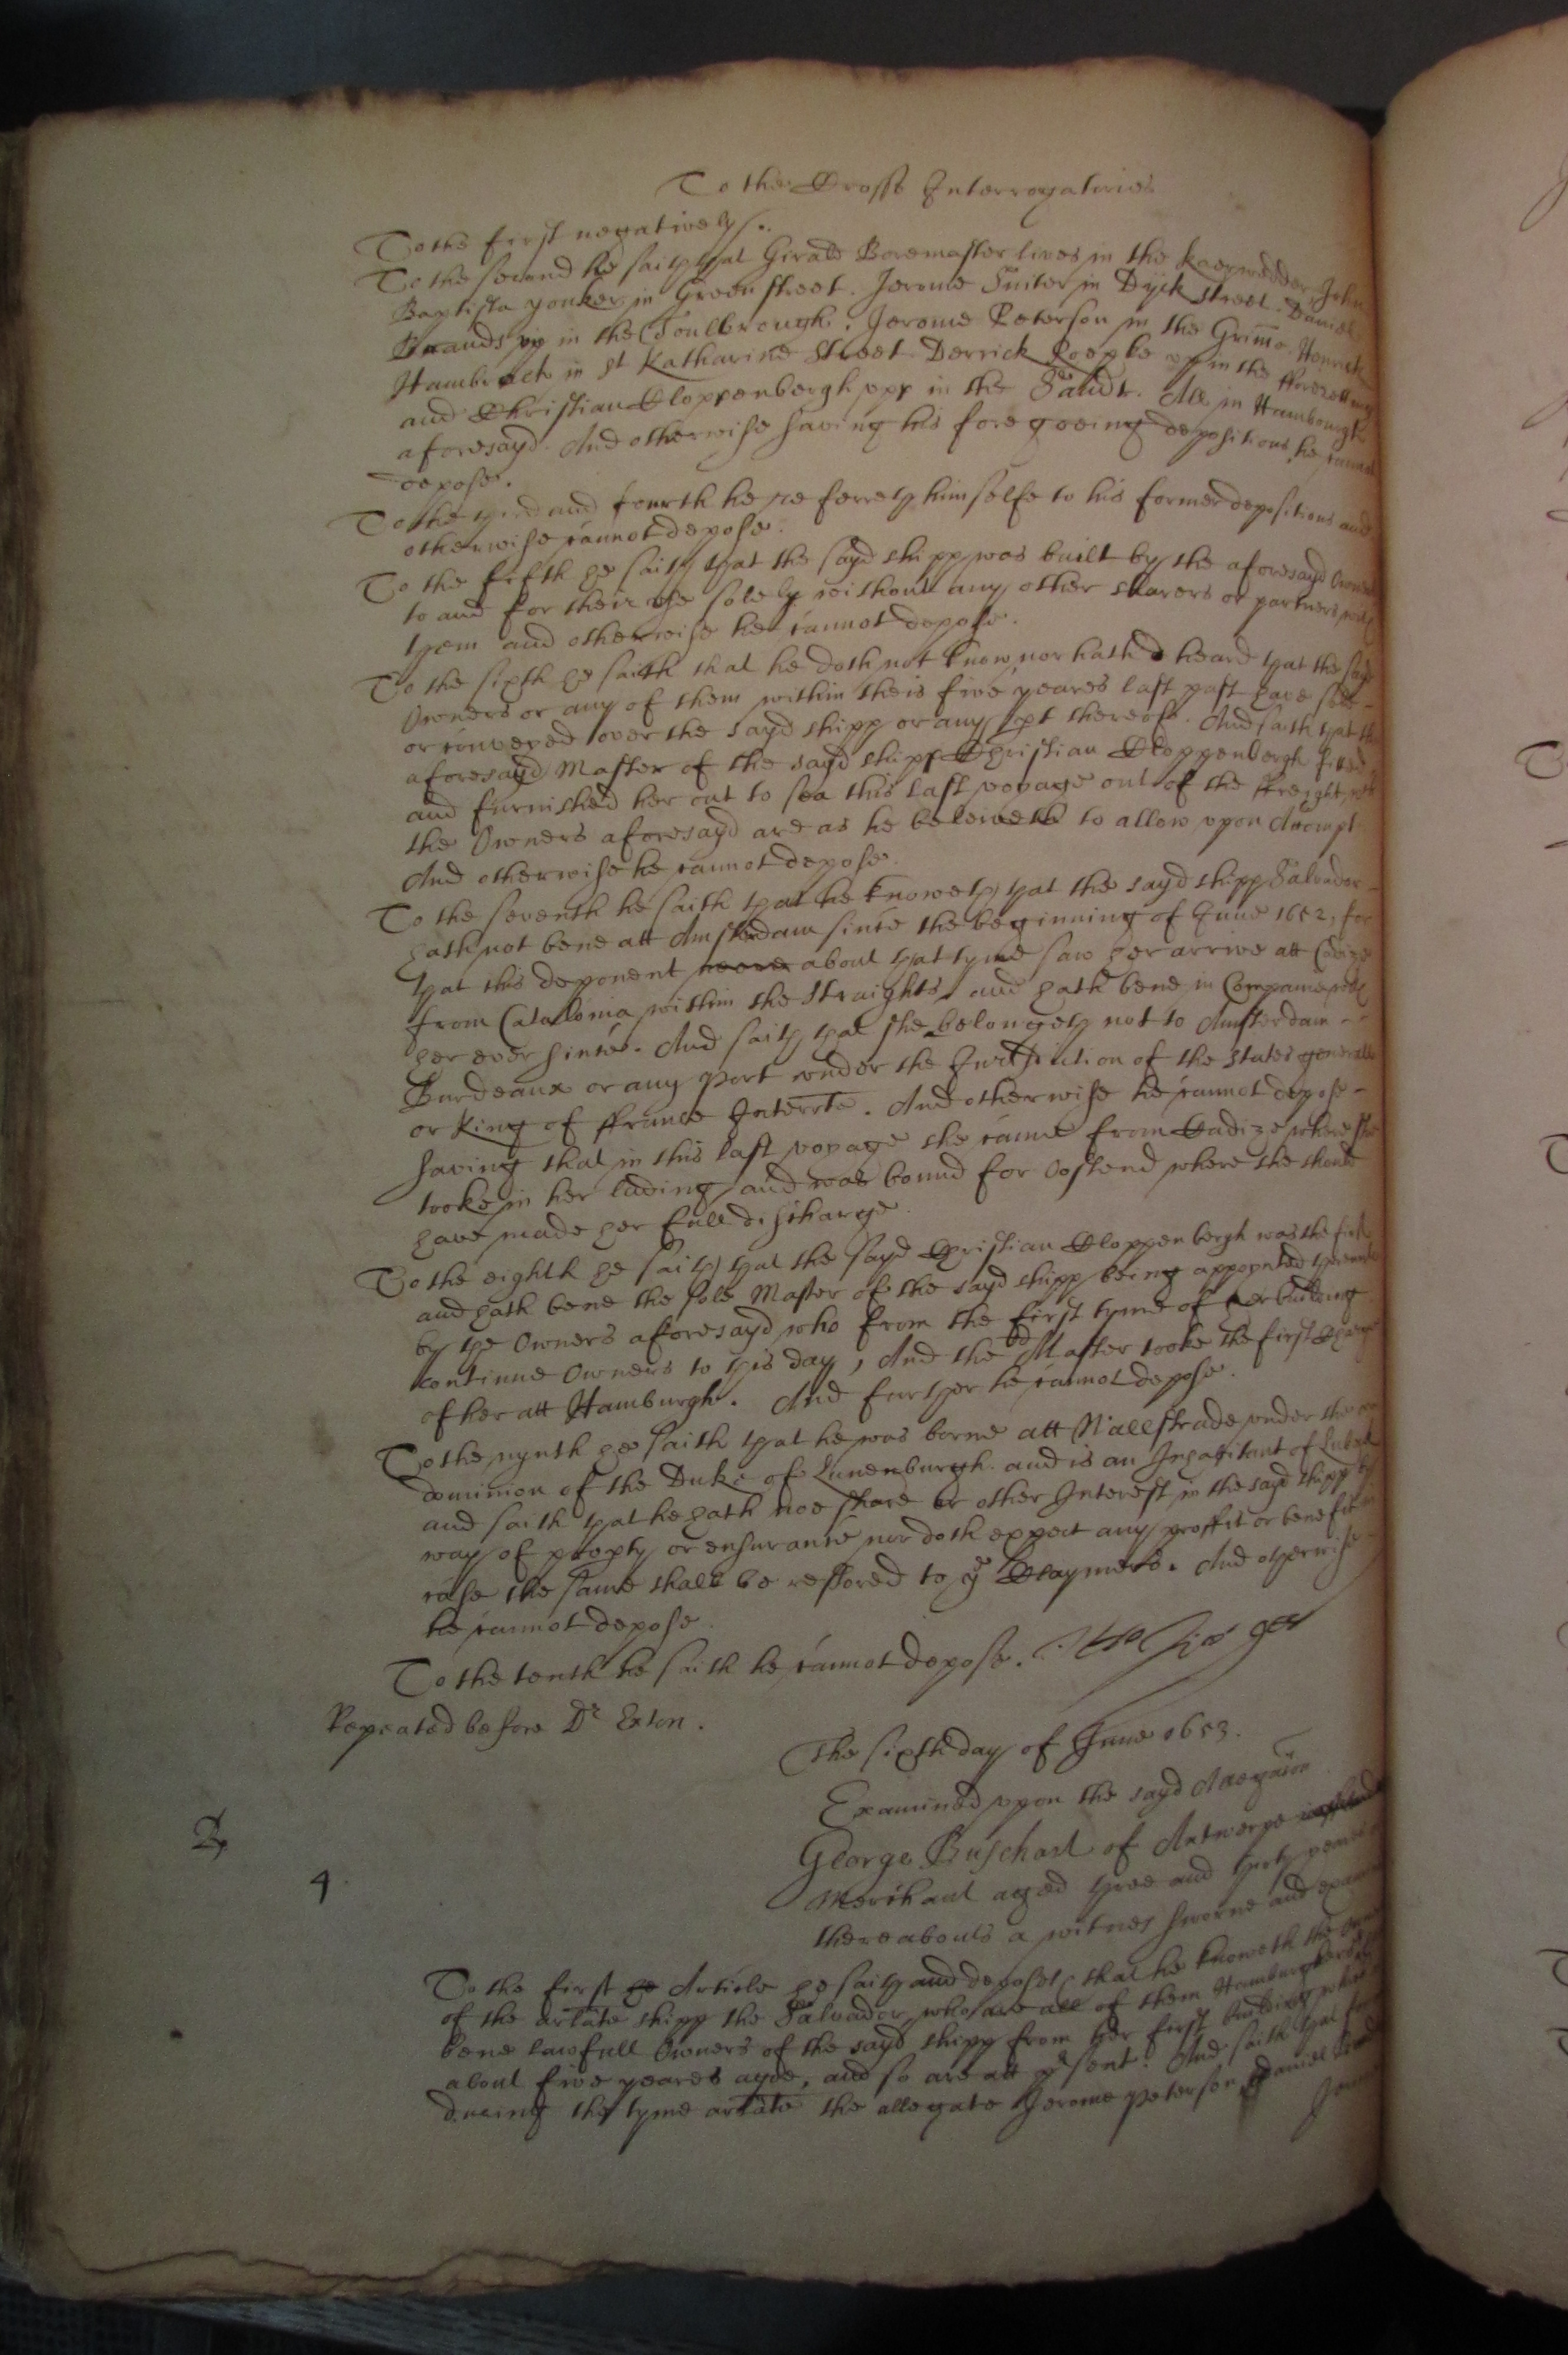 To the Crosse Interrogatories
To the first negatively.
To the second he saith that Girard Boremaster lives in the John
Baptista Yonker in Green street. Jerome Suiter in Dyck street. Daniel
Brands up in the Jerome Peterson in the Grimo Henrick
Hambrock in St Katharine Street Derrick up in the
and Christian Cloppenbergh upp in the Sandt. All in Hambourgh
aforesayd. And otherwise saving his foregoeing depositions he cannot
depose.
To the third and fourth he referreth himselfe to his former depositions and
otherwise cannot depose.
To the fifth he saith that the sayd shipp was built by the aforesayd Owners
to and for their use solely without any other sharers or partners with
them and otherwise he cannot depose.
To the sixth he saith that he doth not know nor hath heard that the sayd
Owners or any of them within theis five yeares last past have sold
or conveyed over the sayd shipp or any pt thereof. And saith that the
aforesayd Master of the sayd shipp Christian Cloppenbergh fitted
and furnished her out to sea this last voyage out of the ffreight, wch
the Owners aforesayd are as he beleiveth to allow upon Accompt
And otherwise he cannot depose.
To the seventh he saith that he knoweth that the sayd shipp Salvador
hath not bene att Amsterdam since the beginning of June 1652, for
that this deponent about that tyme saw her arrive att Cadize
from Catalonia within the Straights, and hath bene in Companie with
her ever since. And saith that she belongeth not to Amsterdam
Burdeaux or any port under the Jurisdiction of the States generall
or King of ffrance Interrte. And otherwise he cannot depose
saving that in this last voyage she came from Cadize where she
tooke in her lading and was bound for Oostend where she should
have made her full discharge.
To the eighth he saith that the sayd Christian Cloppenbergh was the first
and hath bene the sole Master of the sayd shipp being appoynted thereunto
by the Owners aforesayd who from the first tyme of her building
continue Owners to this day, And the sd Master tooke the first charge
of her att Hamburgh. And further he cannot depose.
To the nynth he saith that he was borne att Wallstrade under the
dominion of the Duke of Lunenburgh and is an Inhabitant of Lubeck
and saith that he hath noe share or other Interest in the sayd shipp by
way of propty or ensurance nor doth expect any proffit or benefit in
case the same shall be restored to ye Claymers. And otherwise
he cannot depose.
To the tenth he saith he cannot depose.
Repeated before Dr Exton.
The sixth day of June 1653.
Examined upon the sayd Allegacon
4
George Buschart of Antwerpe
Merchant aged three and thirty yeares or
thereabouts a witnes sworne and examined
To the first he Article he saith and deposeth that he knoweth the Owners
of the arlate shipp the Salvador, who are all of them Hamburghers and have
bene lawfull Owners of the sayd shipp from her first building which is
about five yeares agoe, and so are att psent. And saith that for and
during the tyme arlate the allegate Jerome Peterson, Daniel Brands
Jerome